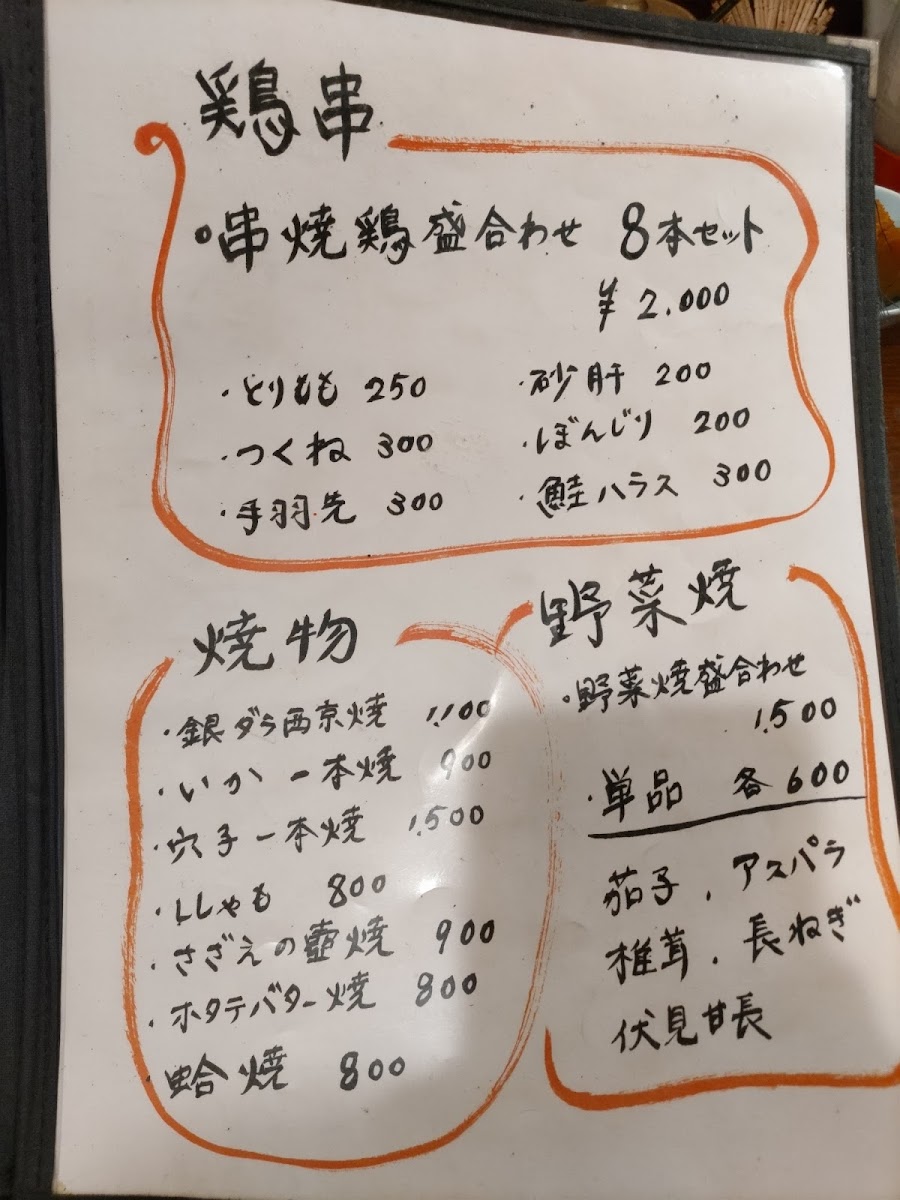 鶏串
・串焼鶏盛合わせ 8本セット
¥2.000
・とりもも 250
・つくね 300
・手羽先 300
・砂肝 200
・ぼんじり 200
・鮭ハラス 300
焼物
・銀ダラ西京焼 1,100
・いか一本焼 900
・穴子一本焼 1,500
・ししゃも 800
・さざえの壷焼 900
・ホタテバター焼 800
・蛤焼 800
野菜焼
・野菜焼盛合わせ
1,500
・単品 各600
茄子.アスパラ
椎茸.長ねぎ
伏見甘長